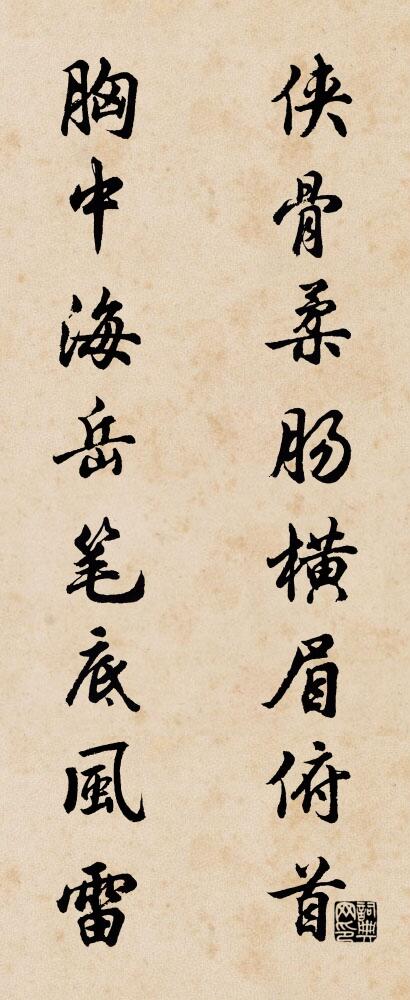 侠骨柔肠横眉俯首
胸中海岳笔底風雷
詞典网印